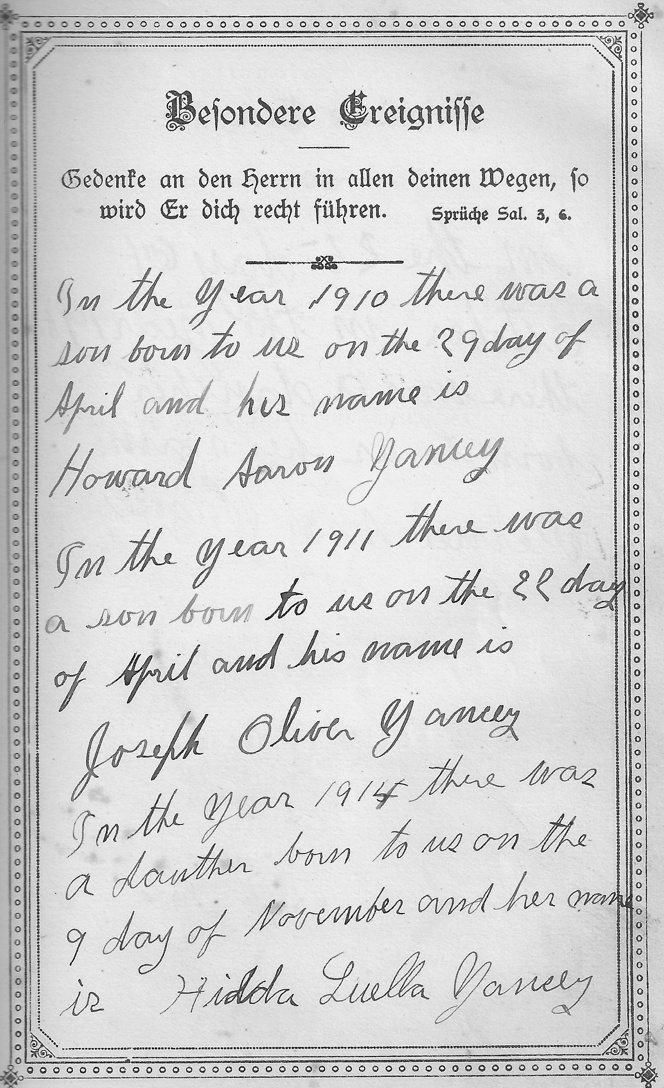 Besondere Ereignisse
Gedenke an den Herrn in allen deinen Wegen, so
wird Er dich recht führen. Sprüche Sal. 3, 6.
In the Year 1910 there was a
son born to us on the 29 day of
April and his name is
Howard Aaron Yancey
In the year 1911 there was
a son born to us on the 22 day
of April and his name is
Joseph Oliver Yancey
In the year 1914 there was
a dauther born to us on the
9 day of November and her name
is Hidda Luella Yancey